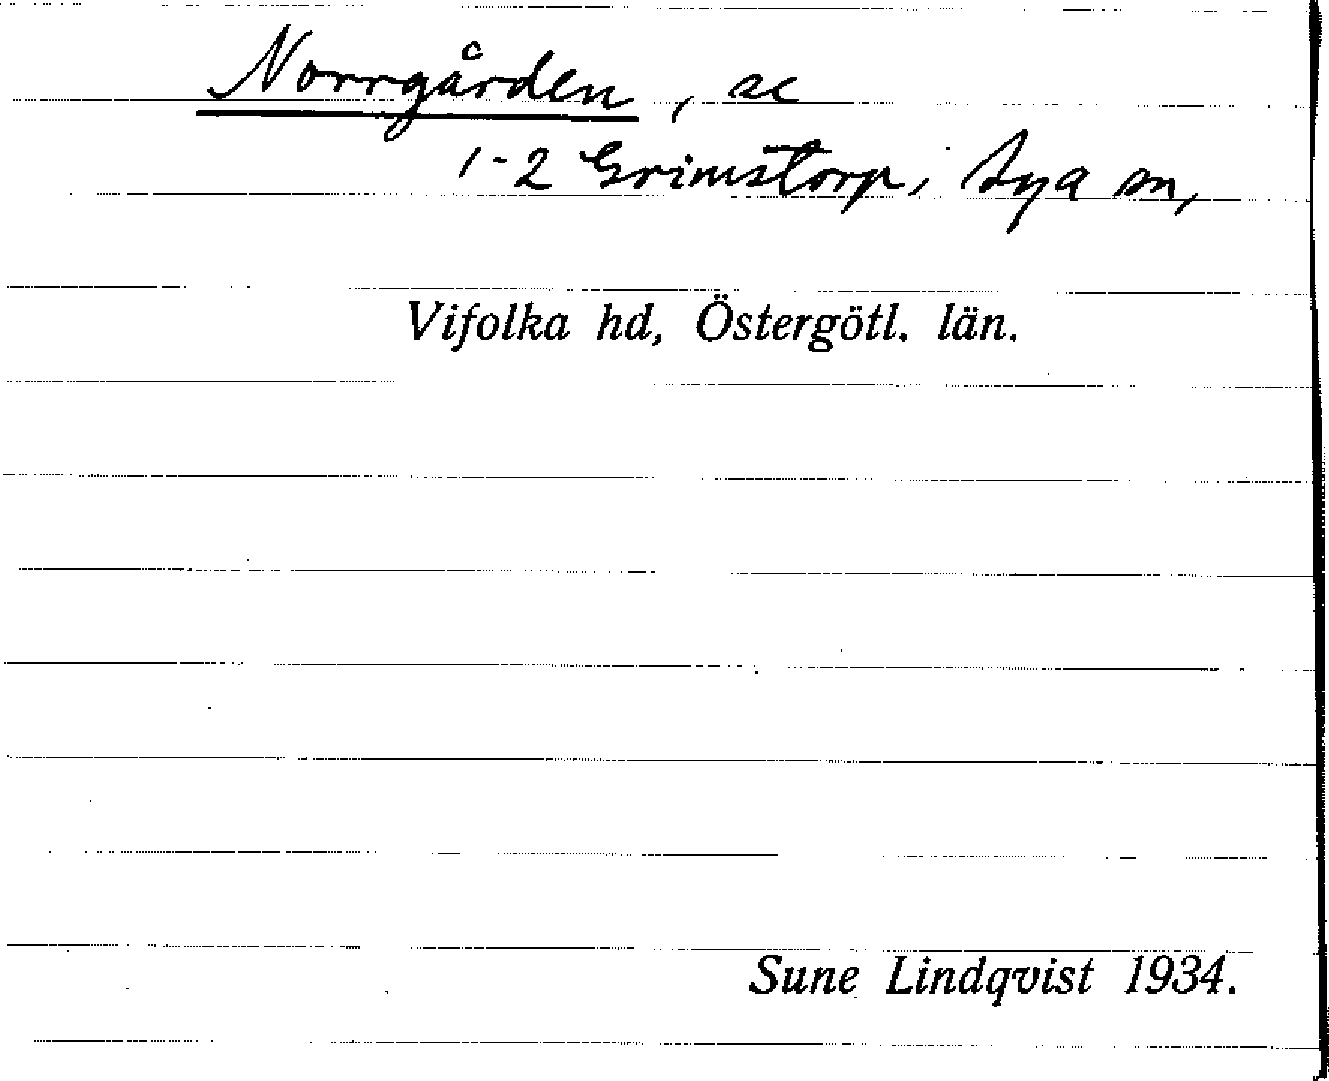 Norrgården,
1-2 Grimstorp, Sya sn,
Vifolka hd, Östergötl. län.
Sune Lindqvist 1934.